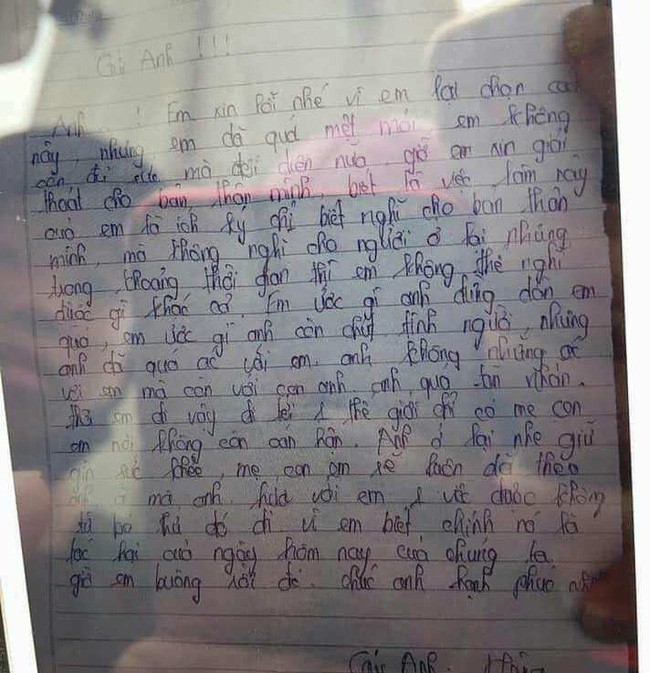 Gửi Anh !!!
Anh...! Em xin lỗi nhé vì em lại chọn cá
này, nhưng em đã quá mệt mỏi em không
còn đủ sức mà đối diện nữa giờ em xin giải
thoát cho bản thân mình, biết là việc làm này
quá em là ích kỷ chỉ biết nghĩ cho bản thân
mình, mà không nghĩ cho người ở lại nhưng
trong khoảng thời gian thì em không thể nghĩ
được gì khác cả. Em ước gì anh đừng dồn em
quá, em ước gì anh còn chút tính người, nhưng
anh đã quá ác với em. anh không những ác
với em mà còn với con anh. anh quá tàn nhẫn.
thôi em đi vậy đi tới 1 thế giới chỉ có mẹ con
em nơi không còn oán hận. Anh ở lại nhé giữ
gìn sức khỏe, mẹ con em sẽ luôn dõi theo
mà anh. hứa với em 1 việc được không
từ bỏ đó đi vì em biết chính nó là
tác hại của ngày hôm nay của chúng ta
giờ em buông rồi đó. chúc anh hạnh phúc
Gửi Anh.